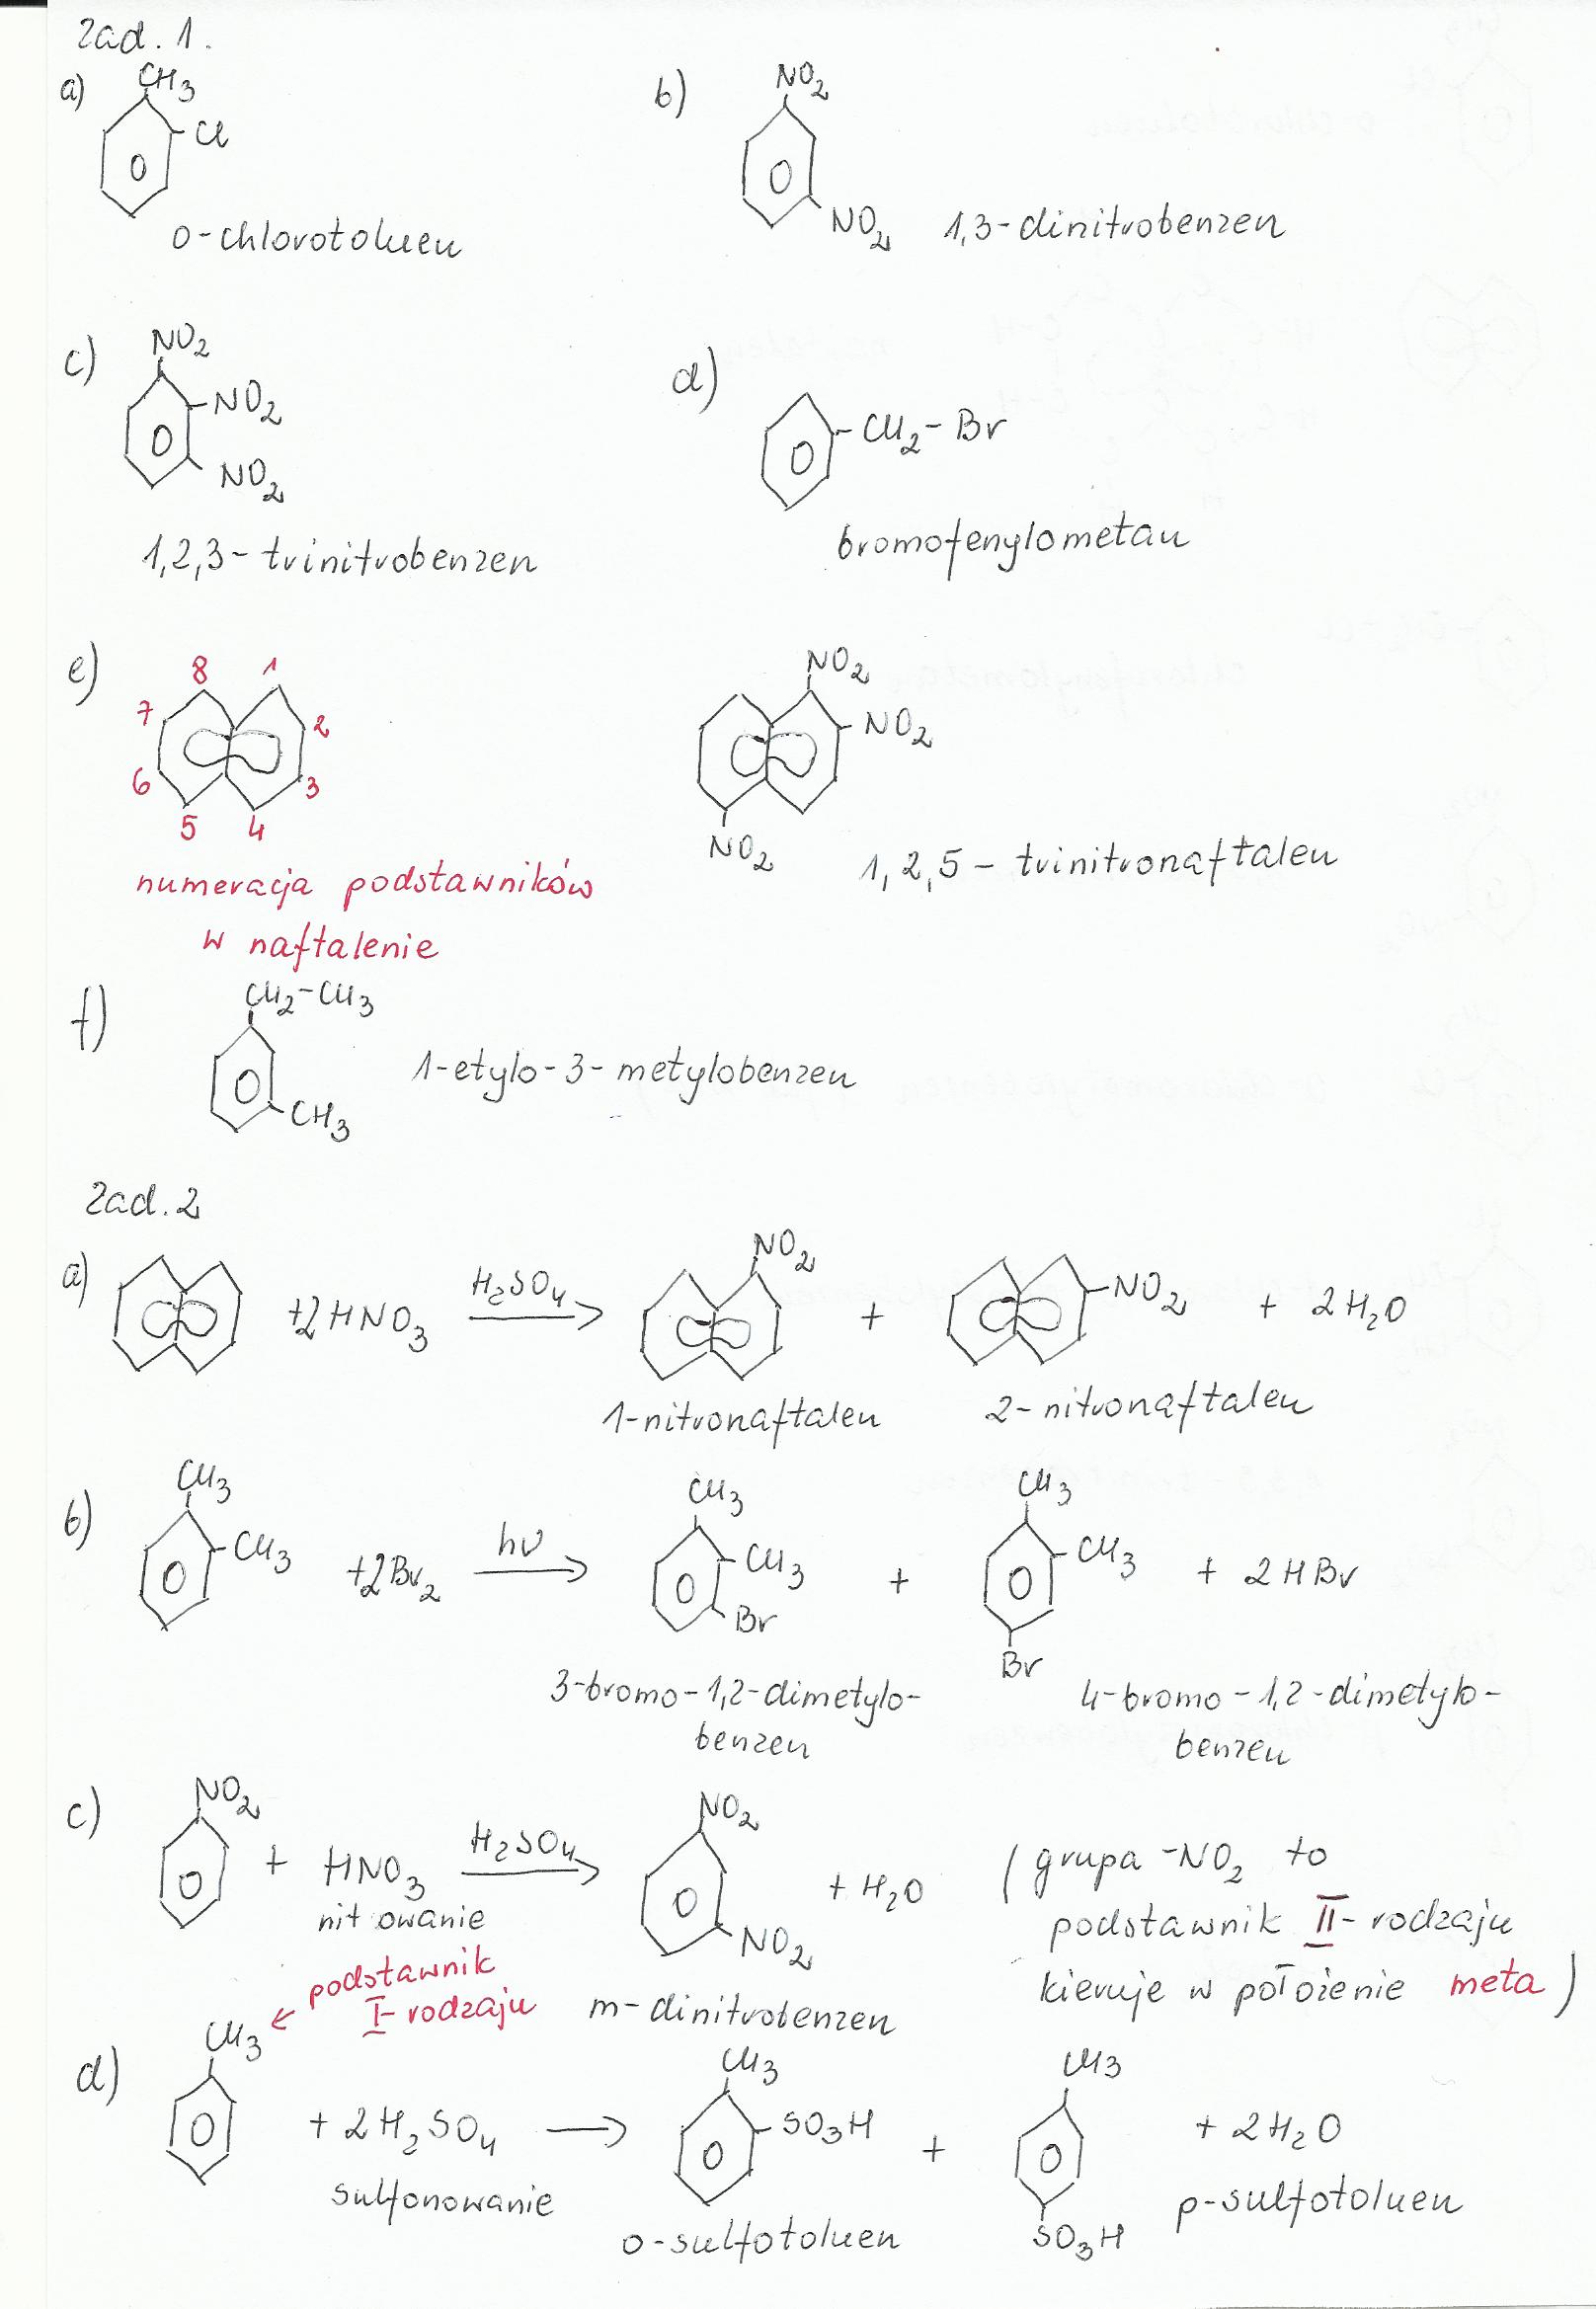 Zad. 1.
a) CH3
Cl
o-chlorotoluen
b) NO2
NO2 1,3-dinitrobenzen
c) NO2
NO2
NO2
1,2,3-trinitrobenzen
d) CH2-Br
bromofenylometan
e) 8 1
7 2
6 3
5 4
numeracja podstawników
w naftalenie
NO2
NO2
NO2 1,2,5-trinitronaftalen
f) CH2-CH3
CH3
1-etylo-3-metylobenzen
Zad. 2
a) +2HNO3 H2SO4 NO2 + NO2 + 2H2O
1-nitronaftalen 2-nitronaftalen
b) CH3 CH3 CH3
CH3 +2Br2 hν CH3 + CH3 + 2HBr
Br Br
3-bromo-1,2-dimetylo-
benzen
4-bromo-1,2-dimetylo-
benzen
c) NO2 + HNO3 H2SO4 NO2 + H2O
nit owanie NO2
m-dinitrobenzen
(grupa -NO2 to
podstawnik II-rodzaju
kieruje w położenie meta)
podstawnik
I-rodzaju
d) CH3 + 2H2SO4 CH3 SO3H + CH3 + 2H2O
sulfonowanie SO3H
o-sulfotoluen p-sulfotoluen